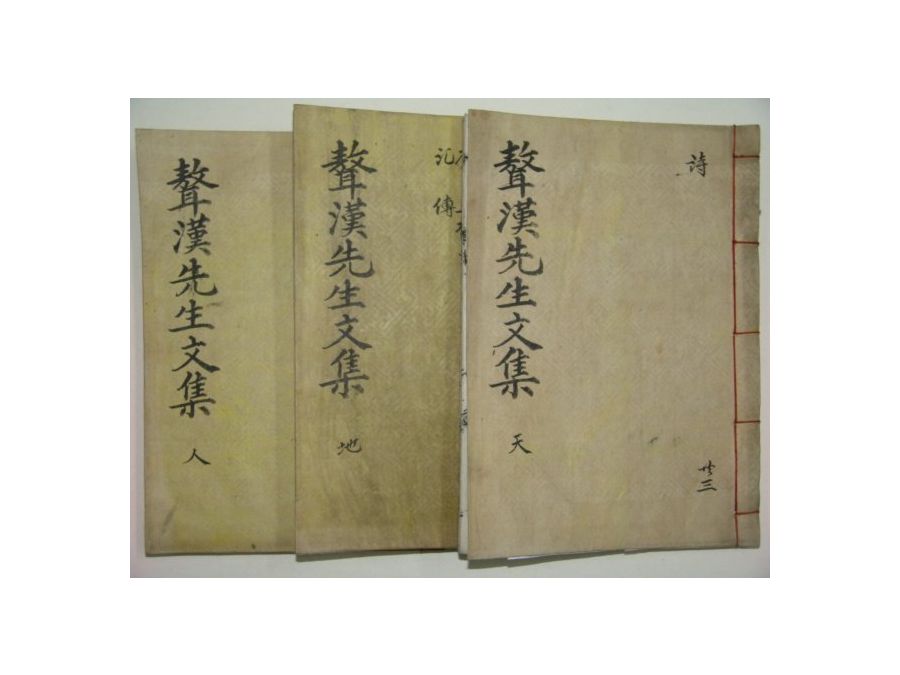 詩
共三
聱漢先生文集 天
記 傳
聱漢先生文集 地
聱漢先生文集 人